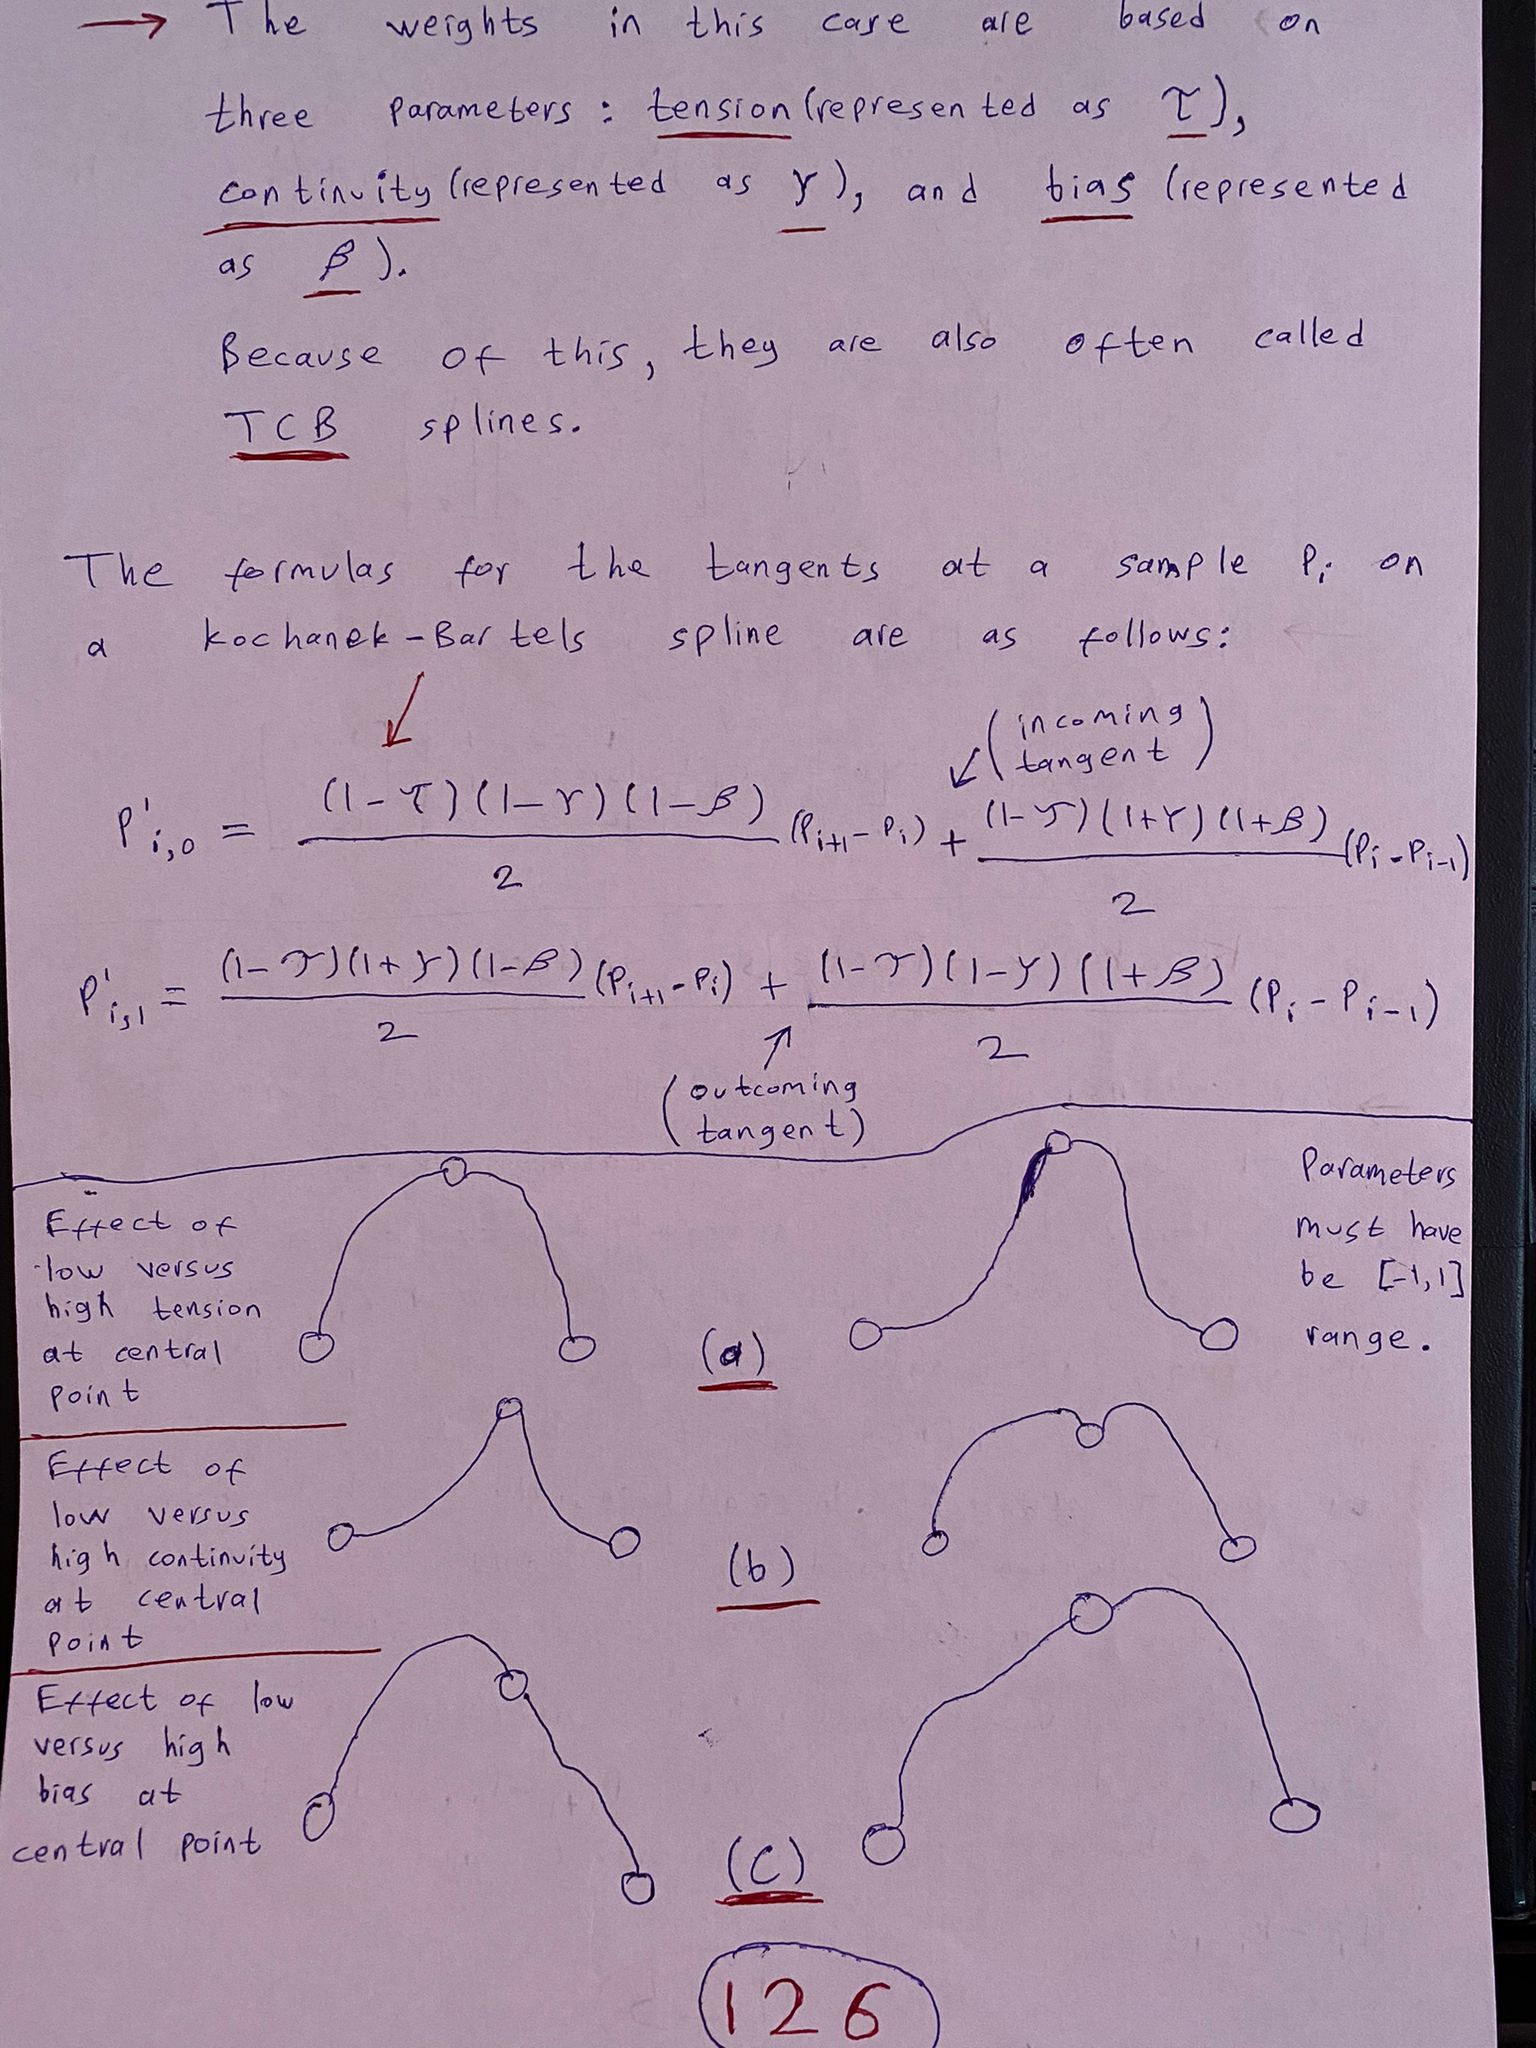 → The weights in this case are based on
three parameters: tension (represented as τ),
continuity (represented as γ), and bias (represented
as β).
Because of this, they are also often called
TCB splines.
The formulas for the tangents at a sample Pi on
a Kochanek-Bartels spline are as follows:
(incoming
tangent)
P'i,0 = (1-τ)(1-γ)(1-β)/2 (Pi+1 - Pi) + (1-τ)(1+γ)(1+β)/2 (Pi - Pi-1)
P'i,1 = (1-τ)(1+γ)(1-β)/2 (Pi+1 - Pi) + (1-τ)(1-γ)(1+β)/2 (Pi - Pi-1)
(outcoming
tangent)
Effect of
low versus
high tension
at central
point
(a)
Parameters
must have
be [-1,1]
range.
Effect of
low versus
high continuity
at central
point
(b)
Effect of low
versus high
bias at
central point
(C)
126